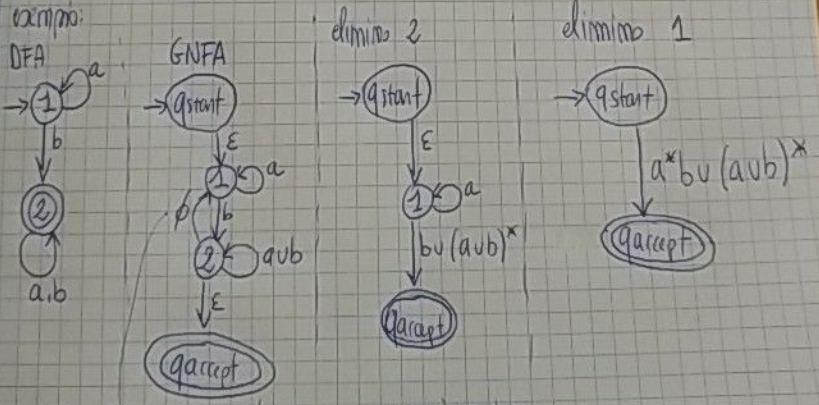 esempio:
DFA
1
a
b
2
a,b
GNFA
qstart
ε
1
a
ϕ
b
2
aub
ε
qaccept
elimino 2
qstart
ε
1
a
bu(aub)*
qaccept
elimino 1
qstart
a*bu(aub)*
qaccept